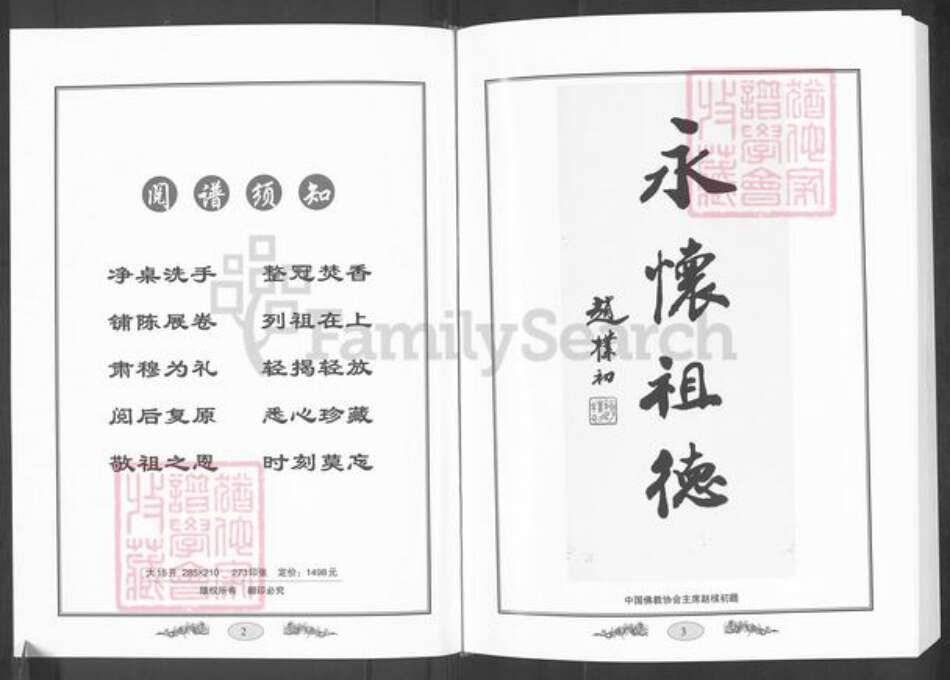 阅谱须知
净桌洗手 整冠焚香
铺陈展卷 列祖在上
肃穆为礼 轻揭轻放
阅后复原 悉心珍藏
敬祖之恩 时刻莫忘
大16开 285×210 273印张 定价：1498元
版权所有 翻印必究
2
永懷祖德
趙樸初
中国佛教协会主席赵樸初题
3
譜學會
收藏
譜學會
收藏
FamilySearch